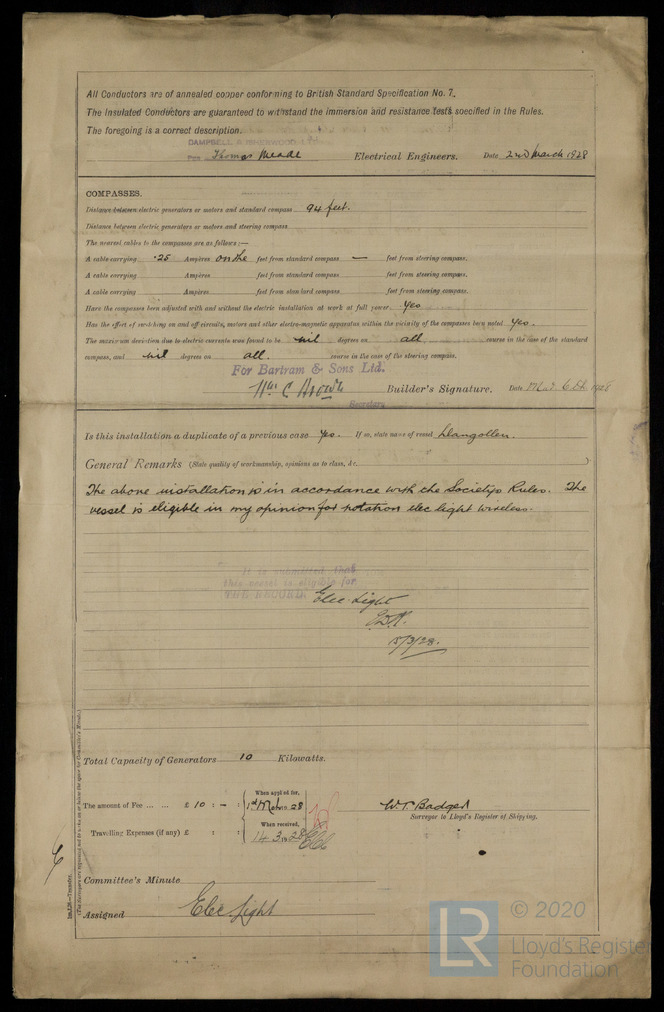 All Conductors are of annealed copper conforming to British Standard Specification No. 7.
The Insulated Conductors are guaranteed to withstand the immersion and resistance tests specified in the Rules.
The foregoing is a correct description.
CAMPBELL & ISHERWOOD, LTD.
Thomas Meade Electrical Engineers. Date 2nd March 1928
COMPASSES.
Distance between electric generators or motors and standard compass 94 feet.
Distance between electric generators or motors and steering compass
The nearest cables to the compasses are as follows:—
A cable carrying .25 Ampères on the feet from standard compass — feet from steering compass.
A cable carrying Ampères feet from standard compass feet from steering compass.
A cable carrying Ampères feet from standard compass feet from steering compass.
Have the compasses been adjusted with and without the electric installation at work at full power. Yes
Has the effect of switching on and off circuits, motors and other electro-magnetic apparatus within the vicinity of the compasses been noted Yes.
The maximum deviation due to electric currents was found to be nil degrees on all course in the case of the standard
compass, and nil degrees on all. course in the case of the steering compass.
For Bartram & Sons Ltd.
Wm C Brown Builder's Signature. Date Mar 6th 1928
Secretary
Is this installation a duplicate of a previous case Yes. If so, state name of vessel Llangollen.
General Remarks (State quality of workmanship, opinions as to class, &c.
The above installation is in accordance with the Society's Rules. The
vessel is eligible in my opinion for notation elec light wireless.
It is submitted that
this vessel is eligible for
THE RECORD. Elec. Light
15/3/28.
Total Capacity of Generators 10 Kilowatts.
The amount of Fee ... ... £ 10 : – :
When applied for,
1st Mch 1928
Travelling Expenses (if any) £ : :
When received,
14 3 1928
W.T. Badger
Surveyor to Lloyd's Register of Shipping.
Committee's Minute
Assigned Elec Light
LR
© 2020
Lloyd's Register
Foundation